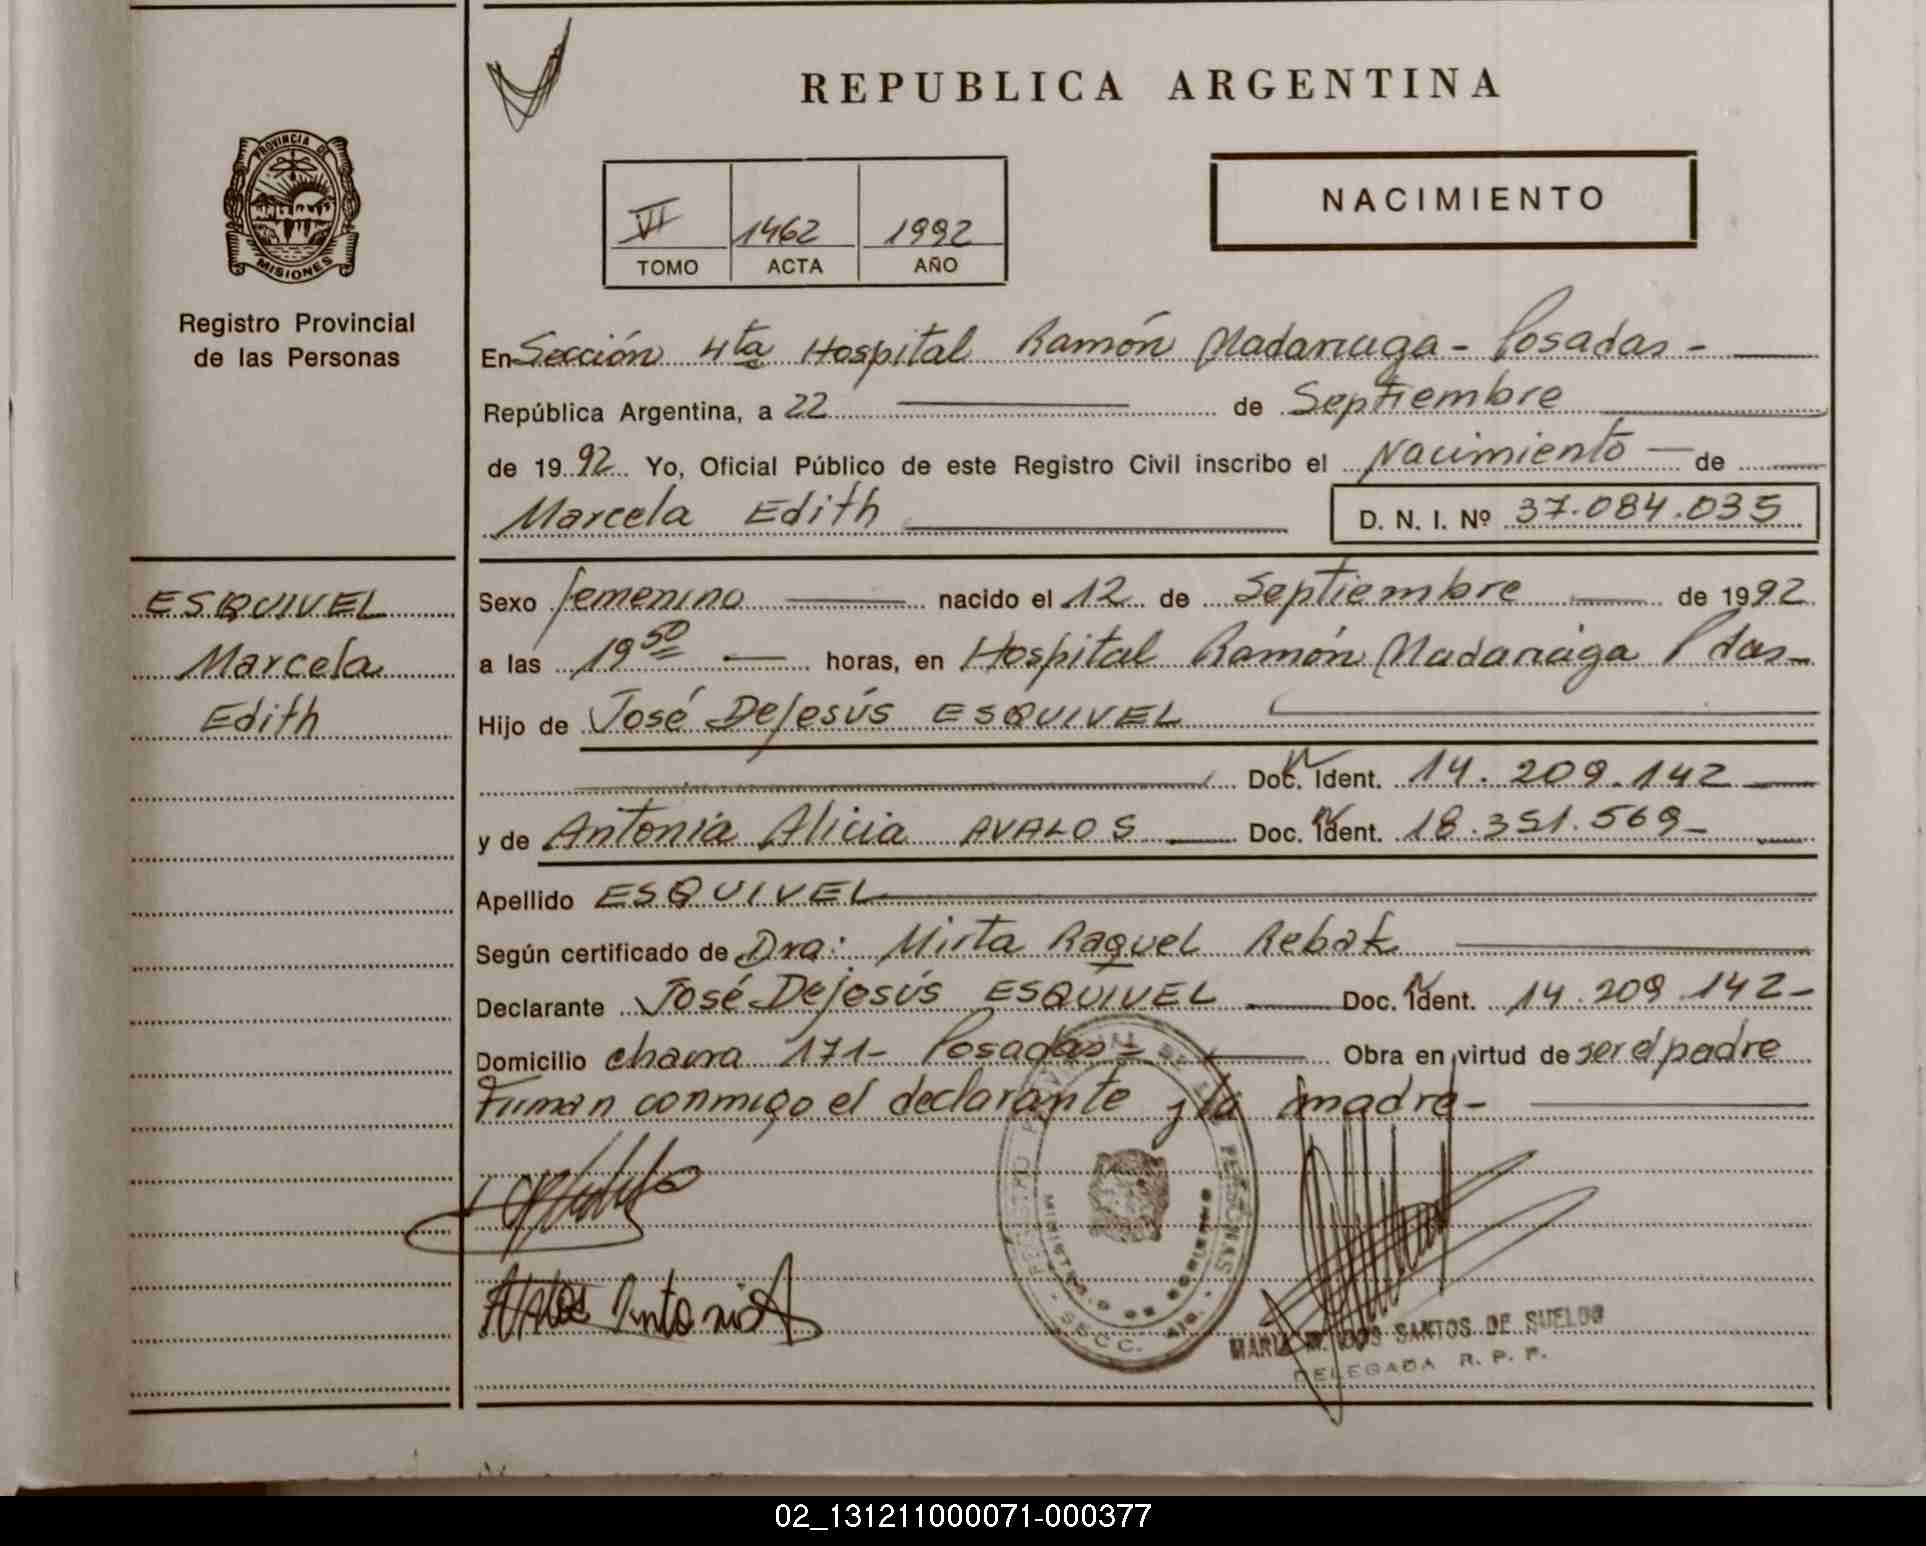 REPUBLICA ARGENTINA
PROVINCIA DE
MISIONES
Registro Provincial
de las Personas
VI 1462 1992
TOMO ACTA AÑO
NACIMIENTO
En Sección 4ta Hospital Ramón Madariaga - Posadas -
República Argentina, a 22 de Septiembre
de 1992 Yo, Oficial Público de este Registro Civil inscribo el Nacimiento de
Marcela Edith
D. N. I. Nº 37.084.035
ESQUIVEL
Marcela
Edith
Sexo femenino nacido el 12 de Septiembre de 1992
a las 19 50 horas, en Hospital Ramón Madariaga Pdas
Hijo de José DeJesús ESQUIVEL
Doc. Ident. 14.209.142
y de Antonia Alicia AVALOS Doc. Ident. 18.351.569
Apellido ESQUIVEL
Según certificado de Dra: Mirta Raquel Rebak
Declarante José Dejesús ESQUIVEL Doc. Ident. 14.209.142-
Domicilio chacra 171- Posadas- Obra en virtud de ser el padre
Firman conmigo el declarante y la madre-
REGISTRO DE LAS PERSONAS
MINISTERIO DE GOBIERNO
SECC.
Antonia
MARIA DOS SANTOS DE SUELDO
DELEGADA R. P. P.
02_131211000071-000377